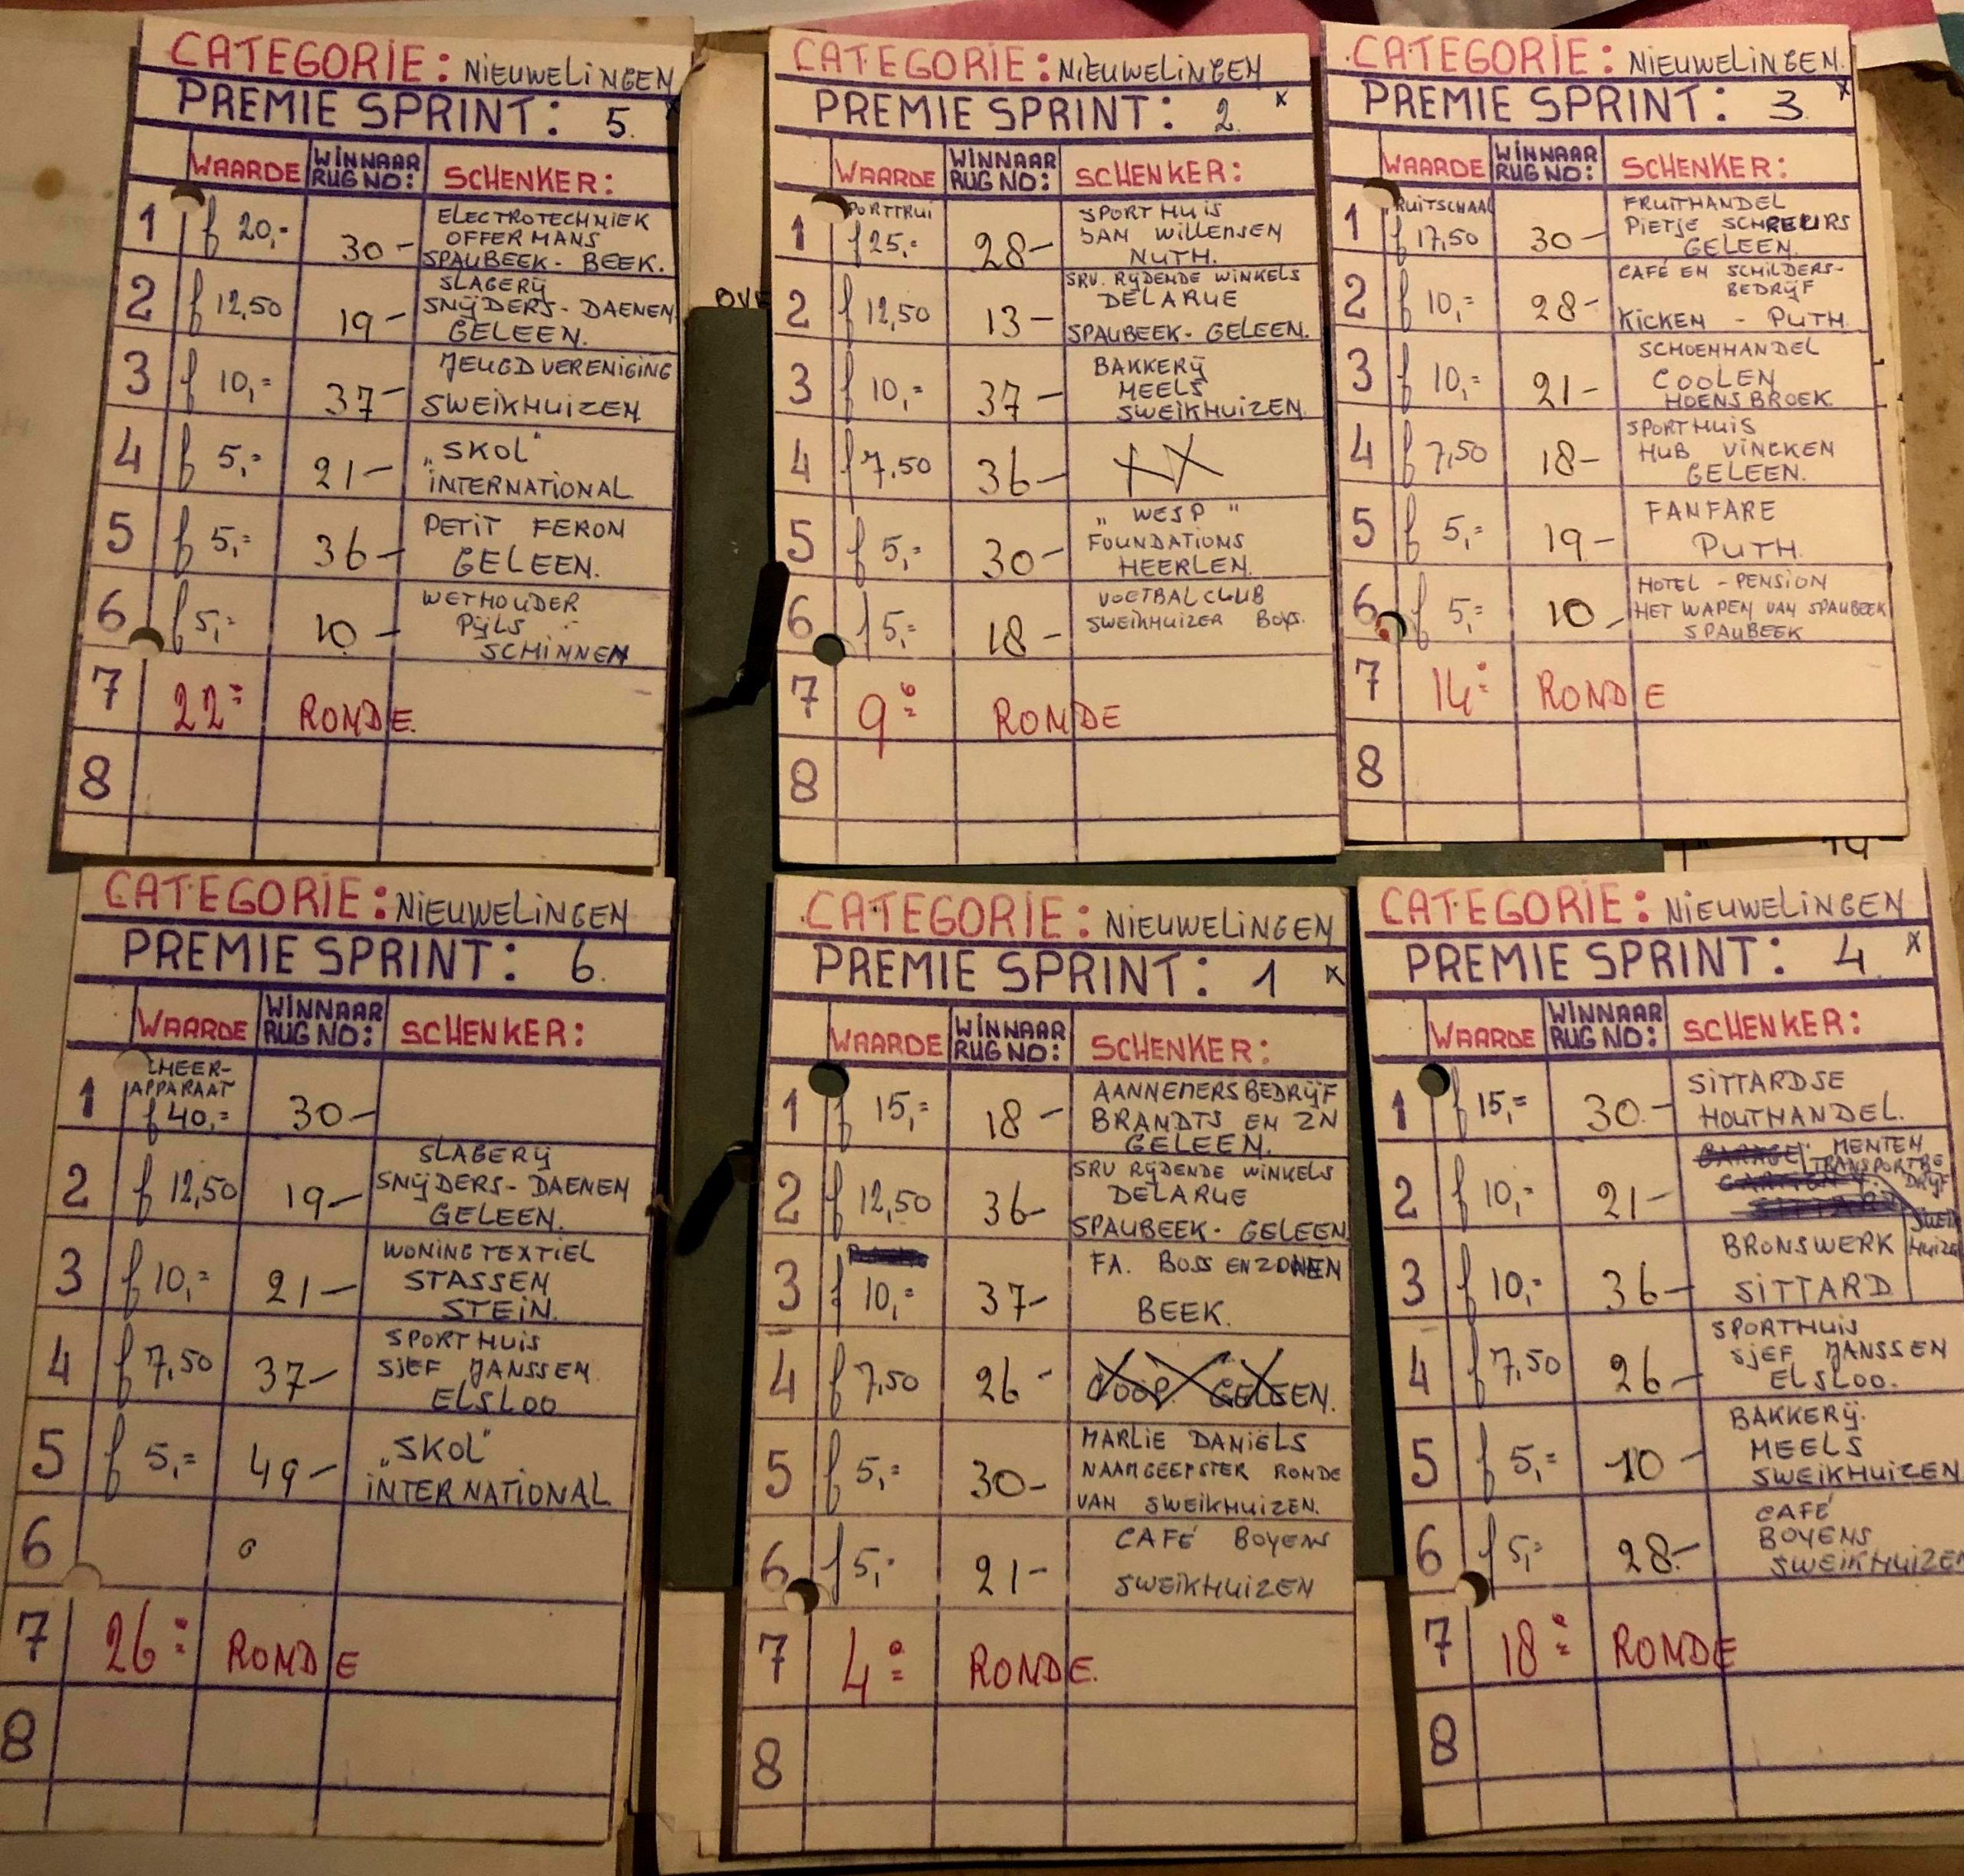 CATEGORIE: NIEUWELINGEN
PREMIE SPRINT: 5. x
WAARDE WINNAAR RUG NO: SCHENKER:
1 f 20,- 30- ELECTROTECHNIEK
OFFERMANS
SPAUBEEK-BEEK.
2 f 12,50 19- SLAGERIJ
SNIJDERS-DAENEN
GELEEN.
3 f 10,= 37- JEUGDVERENIGING
SWEIKHUIZEN
4 f 5,= 21- „SKOL"
INTERNATIONAL
5 f 5,= 36- PETIT FERON
GELEEN.
6 f 5,= 10- WETHOUDER
PIJLS
SCHINNEN
7 22e RONDE.
8
CATEGORIE: NIEUWELINGEN
PREMIE SPRINT: 2. x
WAARDE WINNAAR RUG NO: SCHENKER:
1 PORTTRUI f 25,= 28- SPORTHUIS
JAN WILLEMSEN
NUTH.
2 f 12,50 13- SRV. RIJDENDE WINKELS
DELARUE
SPAUBEEK-GELEEN.
3 f 10,= 37- BAKKERIJ
MEELS
SWEIKHUIZEN
4 f 7,50 36- XX
5 f 5,= 30- „WESP"
FOUNDATIONS
HEERLEN.
6 f 5,= 18- VOETBALCLUB
SWEIKHUIZER BOYS.
7 9e RONDE
8
CATEGORIE: NIEUWELINGEN.
PREMIE SPRINT: 3. x
WAARDE WINNAAR RUG NO: SCHENKER:
1 RUITSCHAAL f 17,50 30- FRUITHANDEL
PIETJE SCHREURS
GELEEN.
2 f 10,= 28- CAFÉ EN SCHILDERS-
BEDRIJF
KICKEN - PUTH.
3 f 10,= 21- SCHOENHANDEL
COOLEN
HOENSBROEK.
4 f 7,50 18- SPORTHUIS
HUB VINCKEN
GELEEN.
5 f 5,= 19- FANFARE
PUTH.
6 f 5,= 10- HOTEL-PENSION
HET WAPEN VAN SPAUBEEK
SPAUBEEK
7 14e RONDE
8
CATEGORIE: NIEUWELINGEN
PREMIE SPRINT: 6.
WAARDE WINNAAR RUG NO: SCHENKER:
1 SCHEER-
APPARAAT
f 40,= 30-
2 f 12,50 19- SLAGERIJ
SNIJDERS-DAENEN
GELEEN.
3 f 10,= 21- WONINGTEXTIEL
STASSEN
STEIN.
4 f 7,50 37- SPORTHUIS
SJEF JANSSEN.
ELSLOO
5 f 5,= 49- „SKOL"
INTERNATIONAL
6
7 26e RONDE
8
CATEGORIE: NIEUWELINGEN
PREMIE SPRINT: 1 x
WAARDE WINNAAR RUG NO: SCHENKER:
1 f 15,= 18- AANNEMERSBEDRIJF
BRANDTS EN ZN
GELEEN.
2 f 12,50 36- SRV RIJDENDE WINKELS
DELARUE
SPAUBEEK-GELEEN
3 f 10,= 37- FA. BOSS EN ZONEN
BEEK.
4 f 7,50 26- COOP. GELEEN.
5 f 5,= 30- MARLIE DANIËLS
NAAMGEEFSTER RONDE
VAN SWEIKHUIZEN.
6 f 5,- 21- CAFÉ BOYENS
SWEIKHUIZEN
7 4e RONDE.
8
CATEGORIE: NIEUWELINGEN
PREMIE SPRINT: 4. x
WAARDE WINNAAR RUG NO: SCHENKER:
1 f 15,= 30- SITTARDSE
HOUTHANDEL.
2 f 10,- 21- GARAGE MENTEN
TRANSPORTBE
DRIJF
SITTARD SWEIK
HUIZEN
3 f 10,= 36- BRONSWERK
SITTARD
4 f 7,50 26- SPORTHUIS
SJEF JANSSEN
ELSLOO.
5 f 5,= 10- BAKKERIJ.
MEELS
SWEIKHUIZEN
6 f 5,= 28- CAFÉ
BOYENS
SWEIKHUIZEN
7 18e RONDE
8